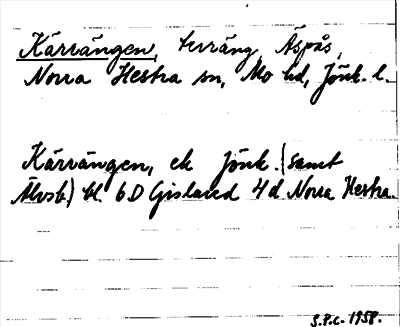 Kärrängen, terräng Äspås,
Norra Hestra sn, Mo hd, Jönk. l.
Kärrängen, ek Jönk. (samt
Älvsb.) bl. 6D Gislaved 4 d Norra Hestra.
S.P.C. 1958.